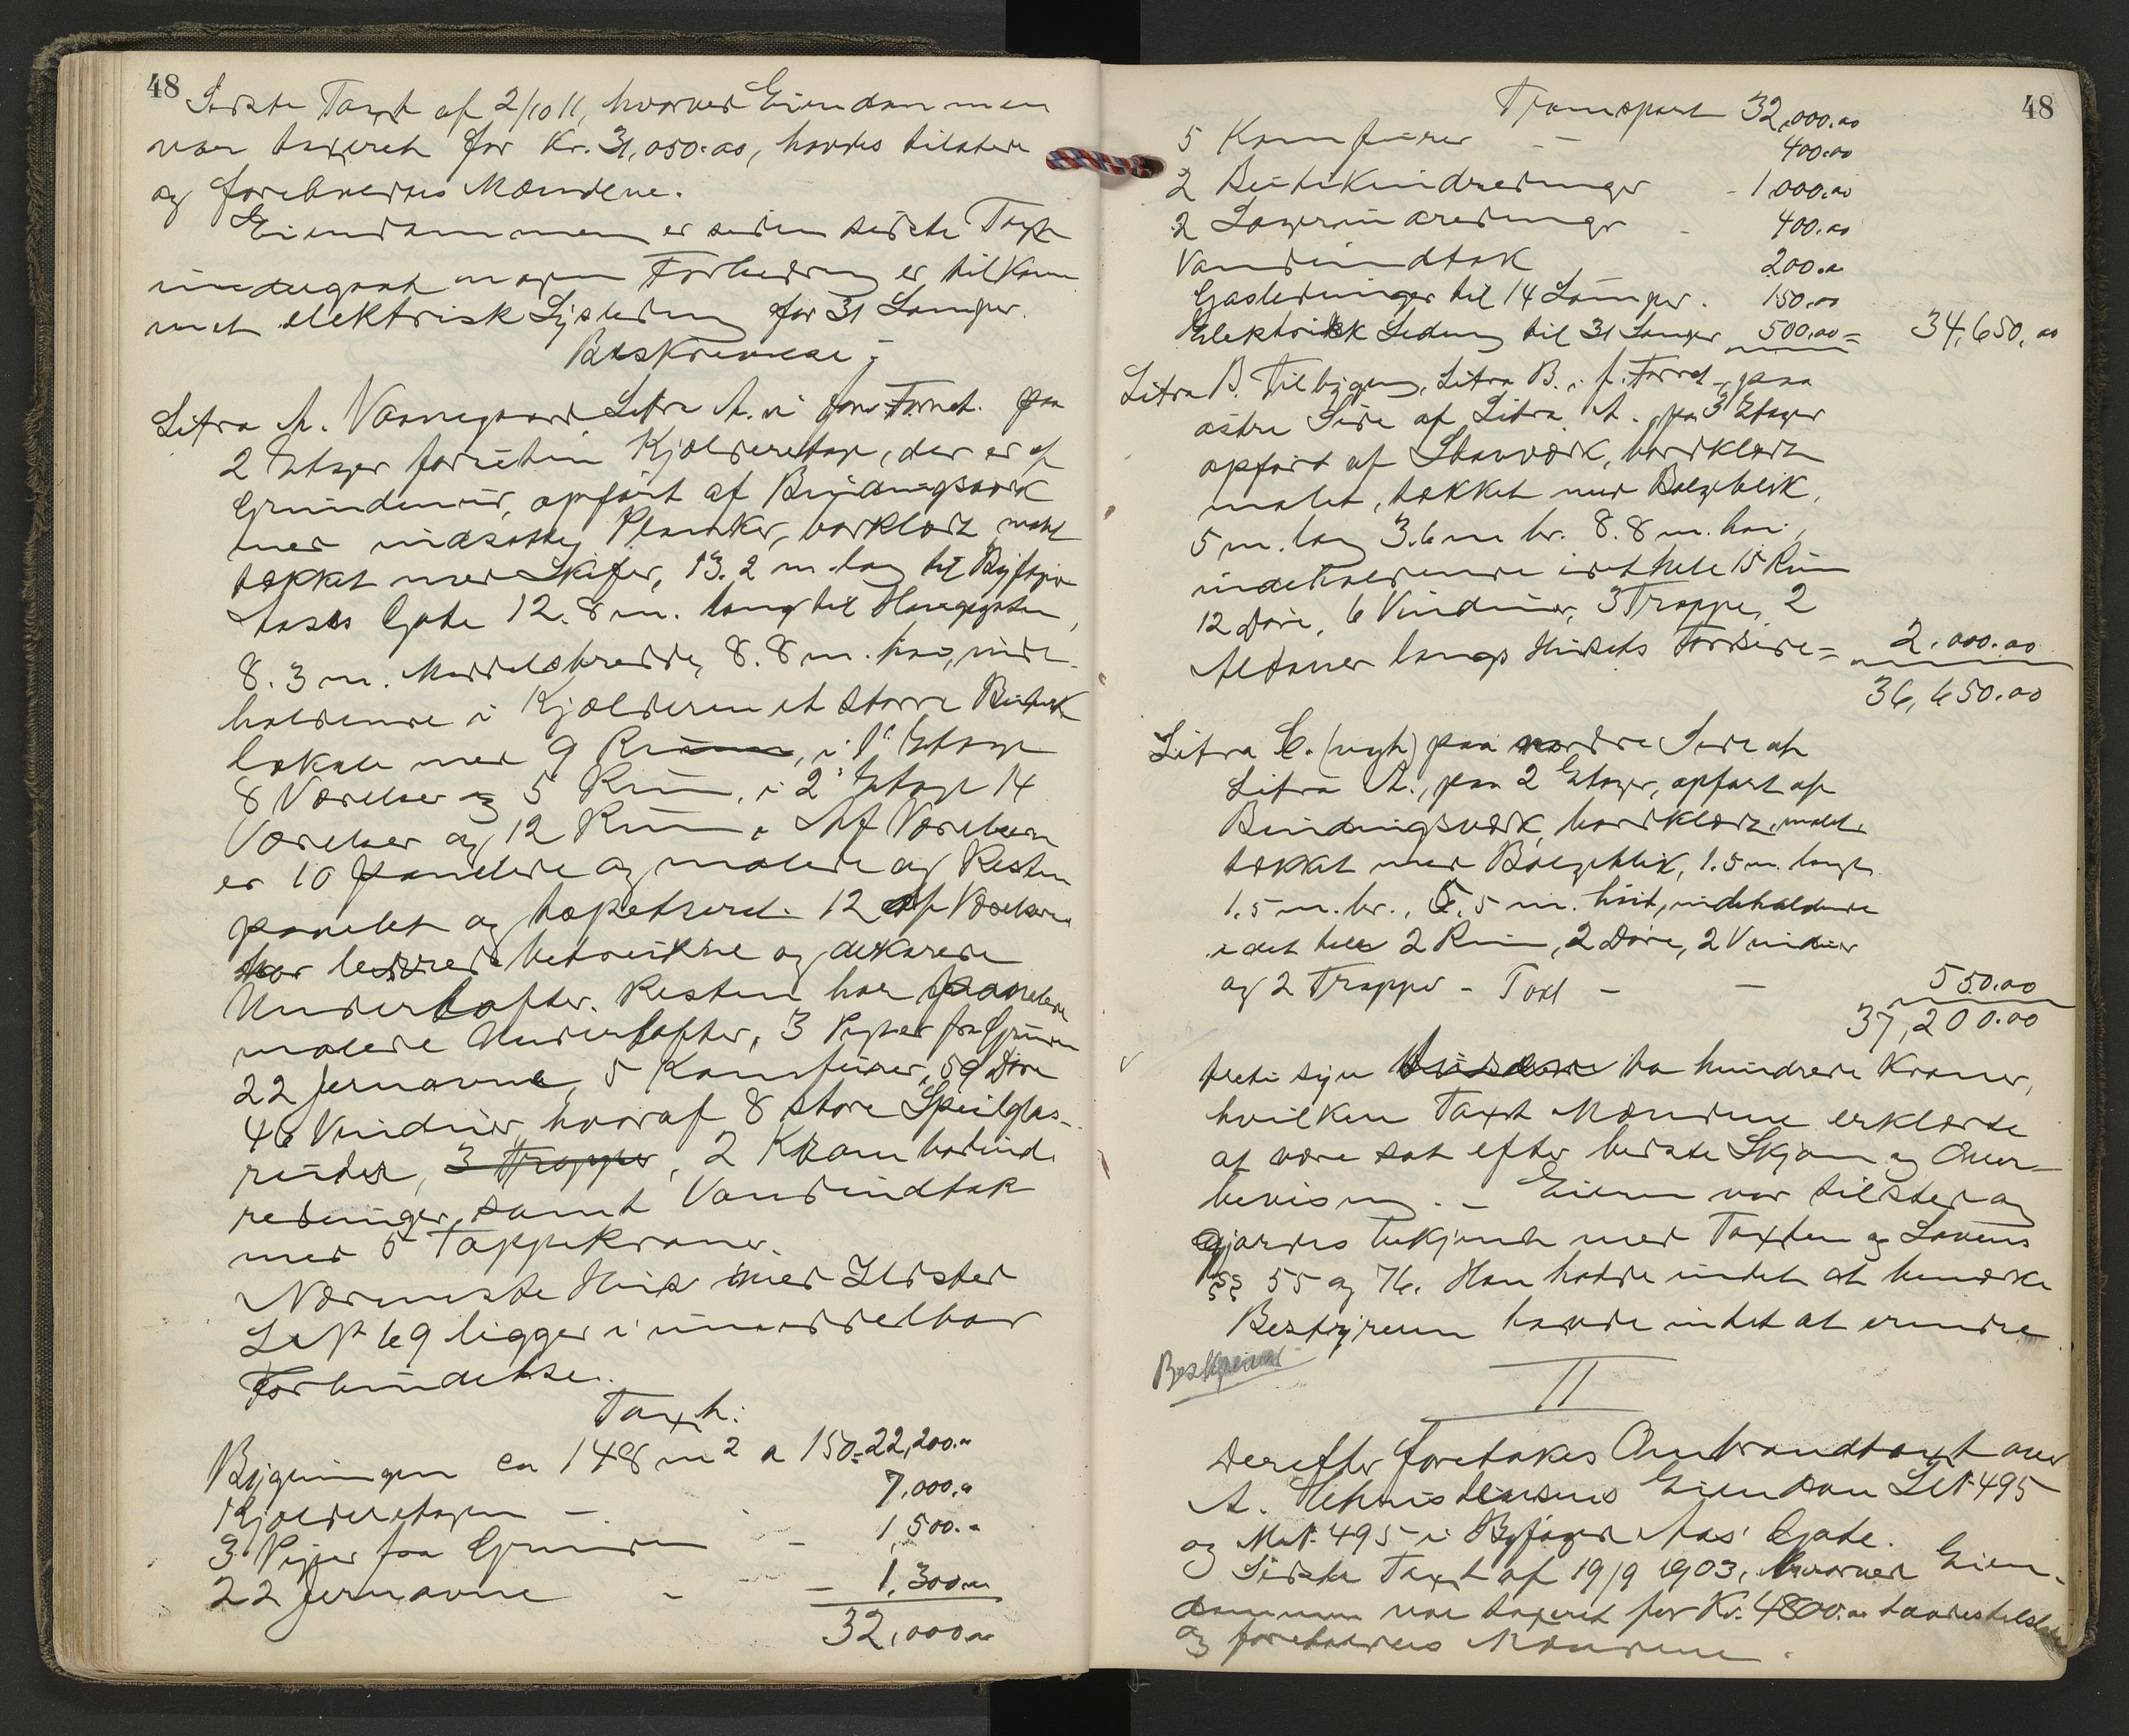 48
Sidste Taxt af 2/10 11, hvorved Eiendommen
var taxeret for Kr. 31,050.00, havdes tilstede
og foreholdtes Mændene.
Eiendommen er siden sidste Taxt
undergaat nogen Forbedring er tilkom
met elektrisk Lysledning for 31 Lamper.
Beskrivelse:
Litra A. Vaaningshus Litra A. i forr. Forret. paa
2 Etager foruden Kjælderetage, der er af
Grundmur, opført af Bindingsværk
med indsatte Planker, bordklædt, malt
tækket med Skifer, 13.2 m. lang til Byfoged
Aas's Gate 12.8 m. lang til Havnegaten,
8.3 m. Middelsbredde, 8.8 m. høi, inde-
holdende i Kjælderen et større Butik
lokale med 9 Rum, i 1' Etage
8 Værelser og 5 Rum, i 2' Etage 14
Værelser og 12 Rum. Af Værelserne
er 10 panelede og malede og Resten
panelet og tapetseret. 12 af Værelserne
har lerreds betrukne og dekorerede
Underlofter. Resten har panelede
malede Underlofter, 3 Piper fra Grunden
22 Jernovne, 5 Komfurer, 59 Døre
46 Vinduer, hvoraf 8 store Speilglas-
ruder, 3 Trapper, 2 Krambodind-
redninger, samt Vandindtak
med 5 Tappekraner.
Nærmeste Hus med Ildsted
L.N. 69 ligger i umiddelbar
Forbindelse.
Taxt:
Bygningen ca 148 m2 a 150 = 22,200.00
Kjælderetagen - 7,000.00
3 Piper fra Grunden - 1,500.00
22 Jernovne - - 1,300.00
32,000.00
48
Transport 32,000.00
5 Komfurer - 400.00
2 Butikindredninger - 1000.00
2 Lagerindredninger - 400.00
Vandindtak 200.00
Gasledninger til 14 Lamper. 150.00
Elektrisk Ledning til 31 Lamper 500.00 = 34,650.00
Litra B. Tilbygning, Litra B. i f. Forret., paa
østre Side af Litra A., paa 3 Etager
opført af Stavværk, bordklædt
malet, tækket med Bølgeblik,
5 m. lang 3.6 m br. 8.8 m. høi,
indeholdende i det hele 15 Rum
12 Døre, 6 Vinduer, 3 Trapper, 2
Altaner langs Husets Forside = 2.000.00
36,650.00
Litra C. (nyt) paa nordre Side af
Litra A., paa 2 Etager, opført af
Bindingsværk, bordklædt, malet
tækket med Bølgeblik, 1.5 m. langt
1.5 m. br., 6.5 m. høit, indeholdende
i det hele 2 Rum, 2 Døre, 2 Vinduer
og 2 Trapper - Taxt - - 550.00
37,200.00
tretti syv tusinde to hundrede Kroner,
hvilken Taxt Mændene erklærte
at være sat efter bedste Skjøn og Over-
bevisning. - Eieren var tilstede og
gjordes bekjendt med Taxten og Lovens
§§ 55 og 76. Han hadde intet at bemærke
Bestyreren havde intet at erindre
Beskrevet
II
Derefter foretokes Ombrandtaxt over
A. Christensens Eiendom L.N. 495
og M.N. 495 i Byfoged Aas' Gate.
Sidste Taxt af 19/9 1903, hvorved Eien-
dommen var taxeret for Kr. 4800.00 havdes tilstede
og foreholdtes Mændene.